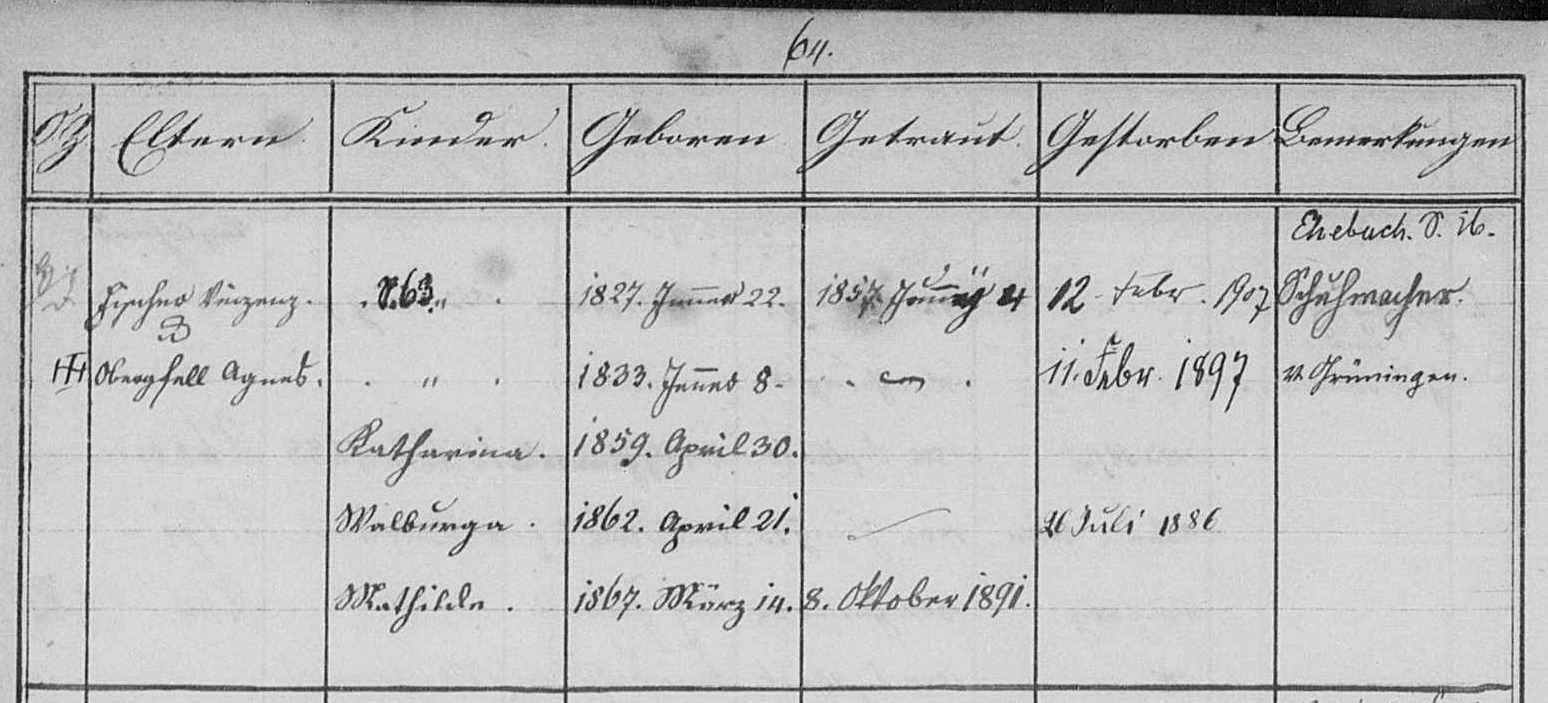 64.
Eltern Kinder. Geboren Getraut. Gestorben Bemerkungen
Ehebuch. S. 16.
Fischer Vinzenz. S. 63. " . 1827. Jenner 22. 12. Febr. 1907 Schuhmacher.
Obergfell Agnes. . " . 1833. Jenner 8. 11. Febr. 1897 v. Grüningen.
Katharina. 1859. April 30.
Walburga. 1862. April 21. Juli 1886
Mathilde. 1867. März 14. 8. Oktober 1891.